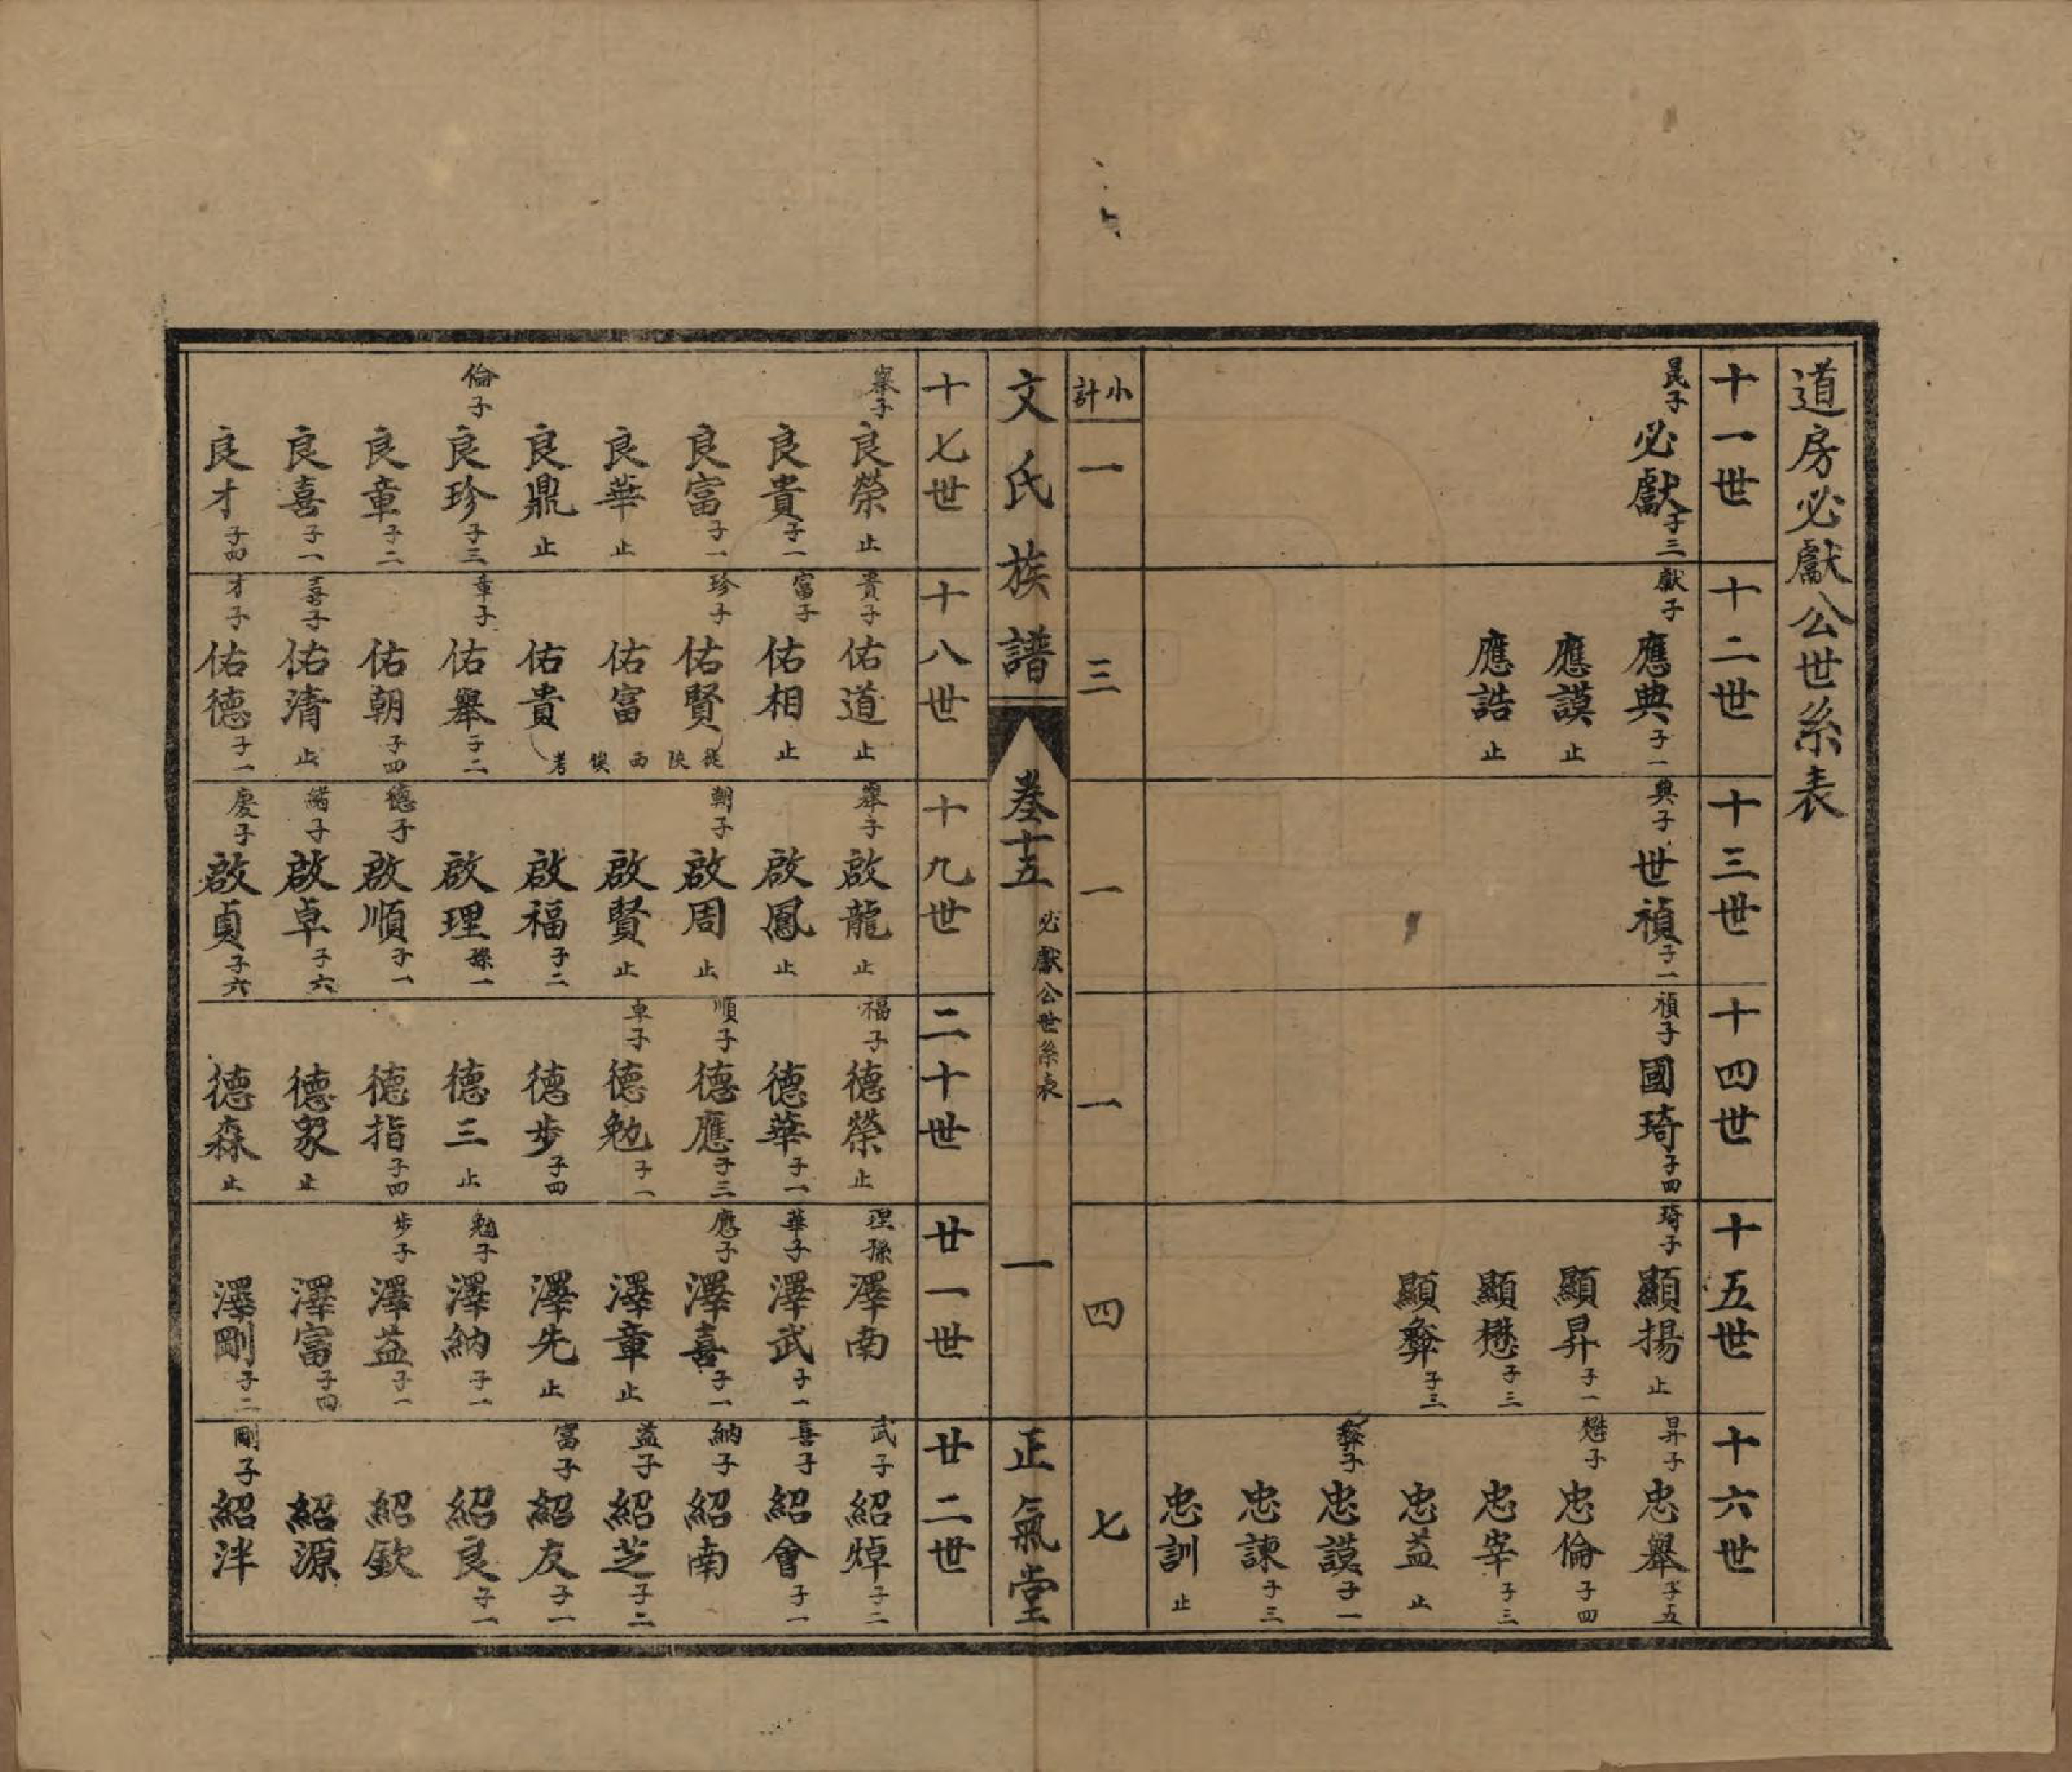 道房必獻公世系表
十一世
晁子 必獻 子三
小計 一
十二世
獻子 應典 子一
應謨 止
應誥 止
三
十三世
典子 世禎 子一
一
十四世
禎子 國琦 子四
一
十五世
琦子 顯揚 止
顯昇 子一
顯懋 子三
顯彝 子三
四
十六世
昇子 忠舉 子五
懋子 忠倫 子四
忠宰 子三
忠益 止
彝子 忠謨 子一
忠諫 子三
忠訓 止
七
文氏族譜
卷十五
必獻公世系表
一
正氣堂
十七世
舉子 良榮 止
良貴 子一
良富 子一
良華 止
良鼎 止
倫子 良珍 子三
良章 子二
良喜 子一
良才 子四
十八世
貴子 佑道 止
富子 佑相 止
珍子 佑賢
佑富
佑貴
(徙陝西俟考)
章子 佑舉 子二
佑朝 子四
喜子 佑清 止
才子 佑德 子一
十九世
舉子 啟龍 止
啟鳳 止
朝子 啟周 止
啟賢 止
啟福 子二
啟理 孫一
德子 啟順 子一
緒子 啟卓 子六
慶子 啟貞 子六
二十世
福子 德榮 止
德華 子一
順子 德應 子三
卓子 德勉 子一
德步 子四
德三 止
德指 子四
德眾 止
德森 止
廿一世
理孫 澤南
華子 澤武 子一
應子 澤喜 子一
澤章 止
澤先 止
勉子 澤納 子一
步子 澤益 子一
澤富 子四
澤剛 子二
廿二世
武子 紹焯 子二
喜子 紹會 子一
納子 紹南
益子 紹芝 子二
富子 紹友 子一
紹良 子一
紹欽
紹源
剛子 紹泮